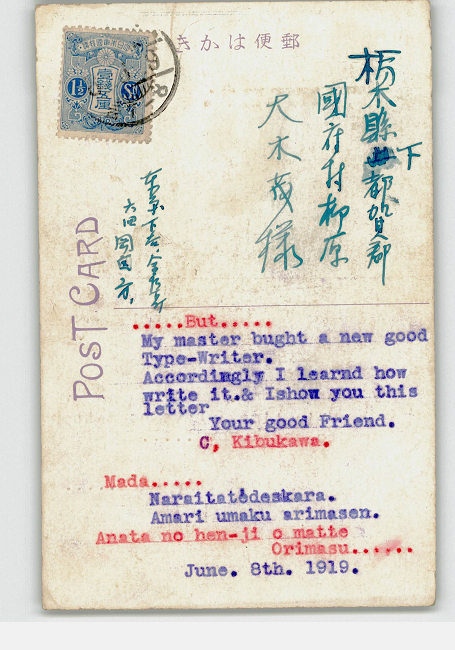 郵便はかき
栃木縣下都賀郡
國府村柳原
大木茂様
POST CARD
.....But.....
My master bught a new good
Type-Writer.
Accordingly I learnd how
write it.& Ishow you this
letter
Your good Friend.
C, Kibukawa.
Mada.....
Naraitatèdeskara.
Amari umaku arimasen.
Anata no hen-ji o matte
Orimasu......
June. 8th. 1919.